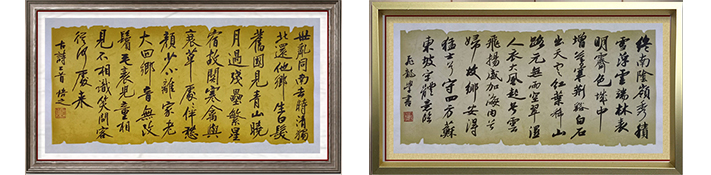 世亂同南去時清獨
北還他鄉生白髮
舊國見青山曉
月過殘壘繁星
宿故關寒禽與
衰草處伴愁
顏少小離家老
大回鄉音無改
鬢毛衰兒童相
見不相識笑問客
從何處來
古詩二首
終南陰嶺秀積
雪浮雲端林表
明霽色城中
增暮寒荊谿白石
出天寒紅葉稀山
路元無雨空翠濕
人衣大風起兮雲
飛揚威加海內兮
歸故鄉安得
猛士兮守四方蘇
東坡字體
飛龍學書